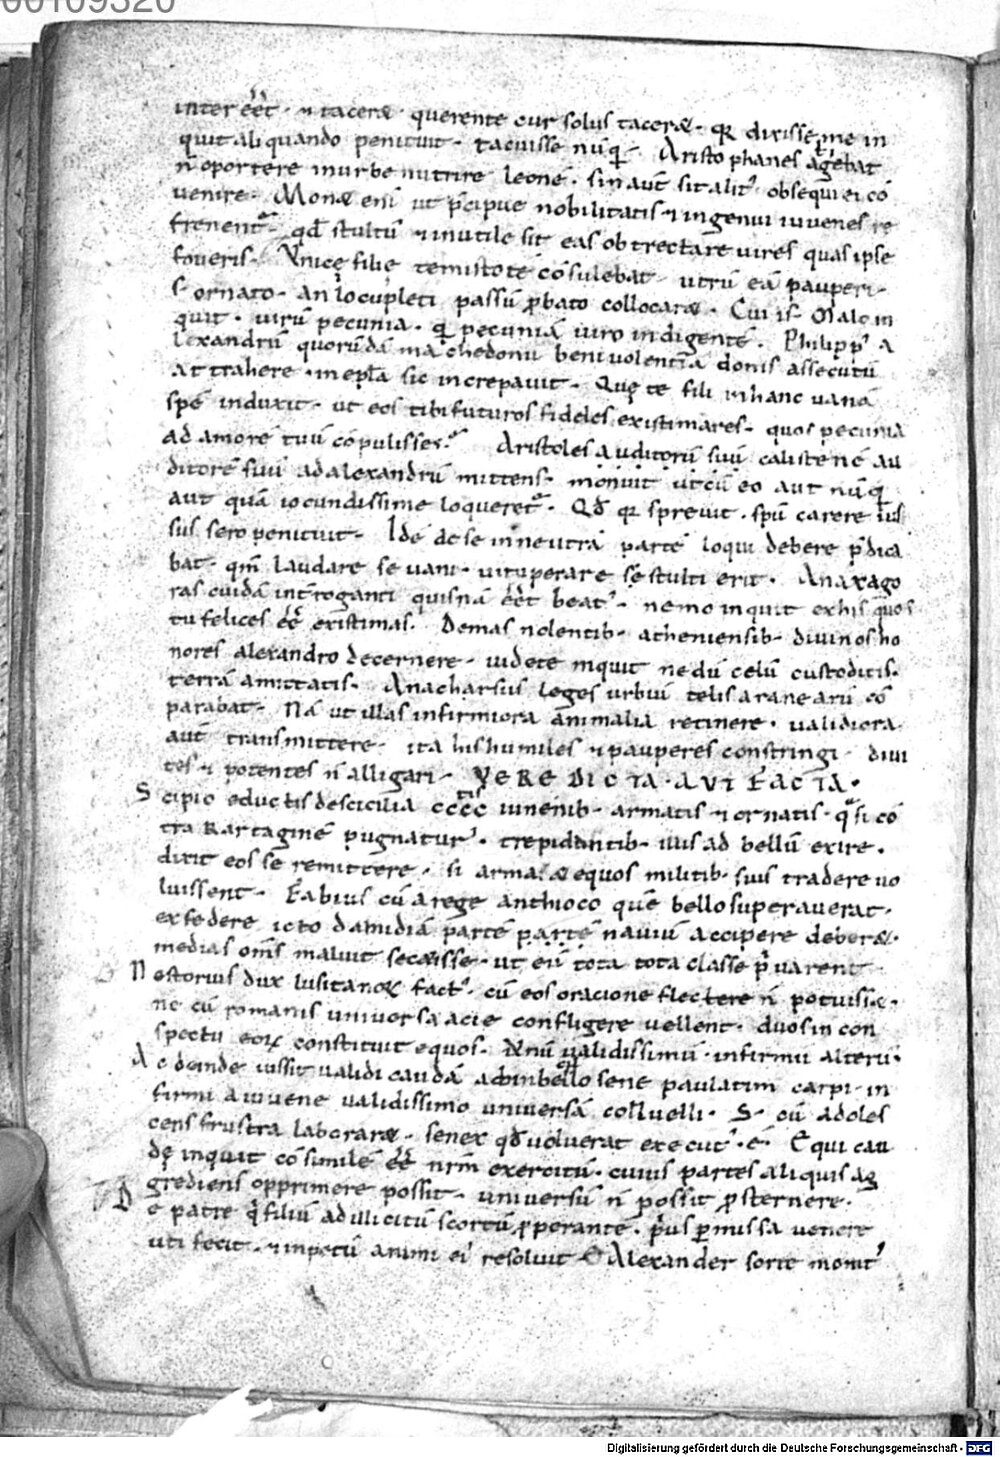 00109320
inter eēt · ⁊ taceræ · querente cur solus taceræ · qꝛ dixisse me in
quit aliquando penituit · tacuisse nūq̄ · Aristophanes agebat
n̄ oportere in urbe nutrire leonē · sin aut̄ sit alit᷒ obsequi ei cō
uenire · Monæ eni ut p̄cipue nobilitatis ⁊ ingenui iuuenes re
frenent᷒ · qd̄ stultū ⁊ inutile sit eas obtrectare uires quas ipse
foueris · Vnicę filię temistote cōsulebat · utrū eā pauperi
s ornato · an locupleti passū ꝓbato collocaræ · Cui is · Malo in
quit · uirū pecunia · q̄ pecuniā uiro indigentē · Philipp᷒ a
lexandrū quorūdā machedonū beniuolentiā donis assecutū
attrahere · in epl̄a sic increpauit · Quę te fili in hanc uanā
spē induxit · ut eos tibi futuros fideles existimares · quos pecunia
ad amorē tuū cōpulisses · Aristoles auditorū suū calistenē au
ditorē suū ad alexandrū mittens · monuit ut cū eo aut nūq̄
aut quā iocundissime loqueret᷒ · Qd̄ qꝛ spreuit · spū carere ius
sus sero penituit · Idē de se in neutrā partē loqui debere p̄dica
bat · qm̄ laudare se uani · uituperare se stulti erit · Anaxago
ras cuidā int̄roganti quisnā eēt beat᷒ · nemo inquit ex his quos
tu felices eē existimas · Demas nolentib · atheniensib · diuinos ho
nores alexandro decernere · uidete inquit ne dū celū custoditis ·
terrā amittatis · Anacharsius leges urbiū telis aranearū cō
parabat · Nā ut illas infirmiora animalia retinere · ualidiora
aut̄ transmittere · ita his humiles ⁊ pauperes constringi · diui
tes ⁊ potentes n̄ alligari · VERE DICTA · AVT FACTA ·
Scipio eductis de scicilia cccc tis iuuenib · armatis ⁊ ornatis · q̄si cō
tra kartaginē pugnatur᷒ · trepidantib · illis ad bellū exire ·
dixit eos se remittere · si arma æ equos militib · suis tradere uo
luissent · Fabius cū a rege anthioco quē bello superauerat ·
ex federe icto damidiā partē partē nauiū accipere deberæ ·
medias om̄s maluit secuisse · ut eū tota tota classe p̄uarent ·
Nestorius dux lusitanoꝝ fact᷒ · cū eos oracione flectere n̄ potuissæ ·
ne cū romanis uniuersa acie confligere uellent · duos in con
spectu eoꝝ constituit equos · Vnū ualidissimū · infirmū alterū ·
Ac deinde iussit ualidi caudā ab inbello sene paulatim carpi · in
firmi a iuuene ualidissimo uniuersā conuelli · S · cū adoles
cens frustra laboraræ · senex qd̄ uoluerat execut᷒ · ē · Equi cau
dę inquit cōsimilē eē nr̄m exercitū · cuius partes aliquis ag
grediens opprimere possit · uniuersū n̄ possit ꝓsternere ·
De patre q̄ filiū ad illicitū scortū ꝓperantē · p̄us ꝑmissa uenere
uti fecit · ⁊ inpetū animi ei᷒ resoluit · Alexander sorte monit᷒
Digitalisierung gefördert durch die Deutsche Forschungsgemeinschaft - DFG